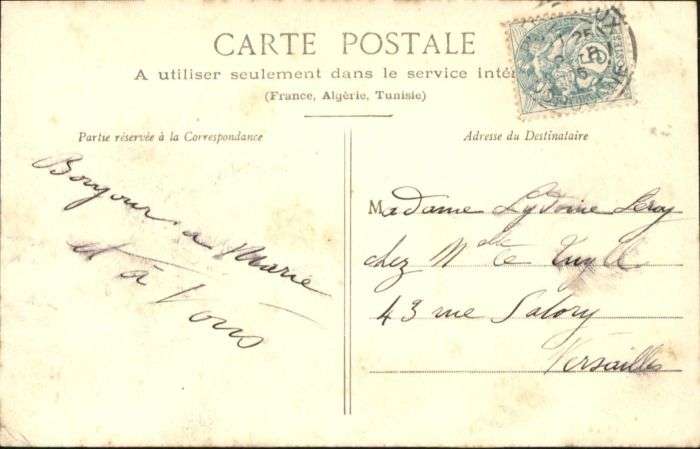 CARTE POSTALE
A utiliser seulement dans le service inté
(France, Algérie, Tunisie)
Partie réservée à la Correspondance
Bonjour à Marie
et à Vous
Adresse du Destinataire
Madame Leroy
chez Mlle
43 rue Satory
Versailles